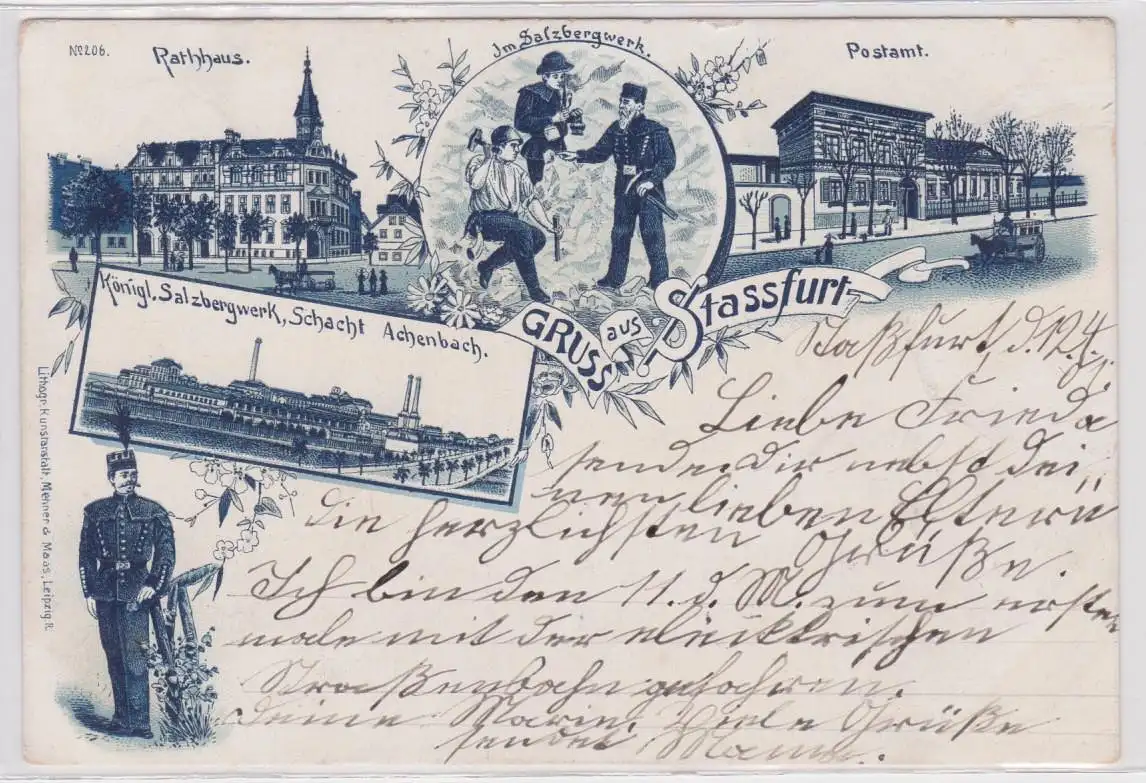 No 206.
Rathhaus.
Im Salzbergwerk.
Postamt.
Königl. Salzbergwerk, Schacht Achenbach.
GRUSS aus Stassfurt
Lithogr. Kunstanstalt, Meisner &
Leipzig-R.
Staßfurt, d. 12.4.
Liebe Frieda
sende Dir nebst dei„
nen lieben Eltern
die herzlichsten Grüße.
Ich bin den 11. d. M. zum ersten
male mit der
Straßenbahn gefahren.
Deine Marie. Viele Grüße
sendet Mama.